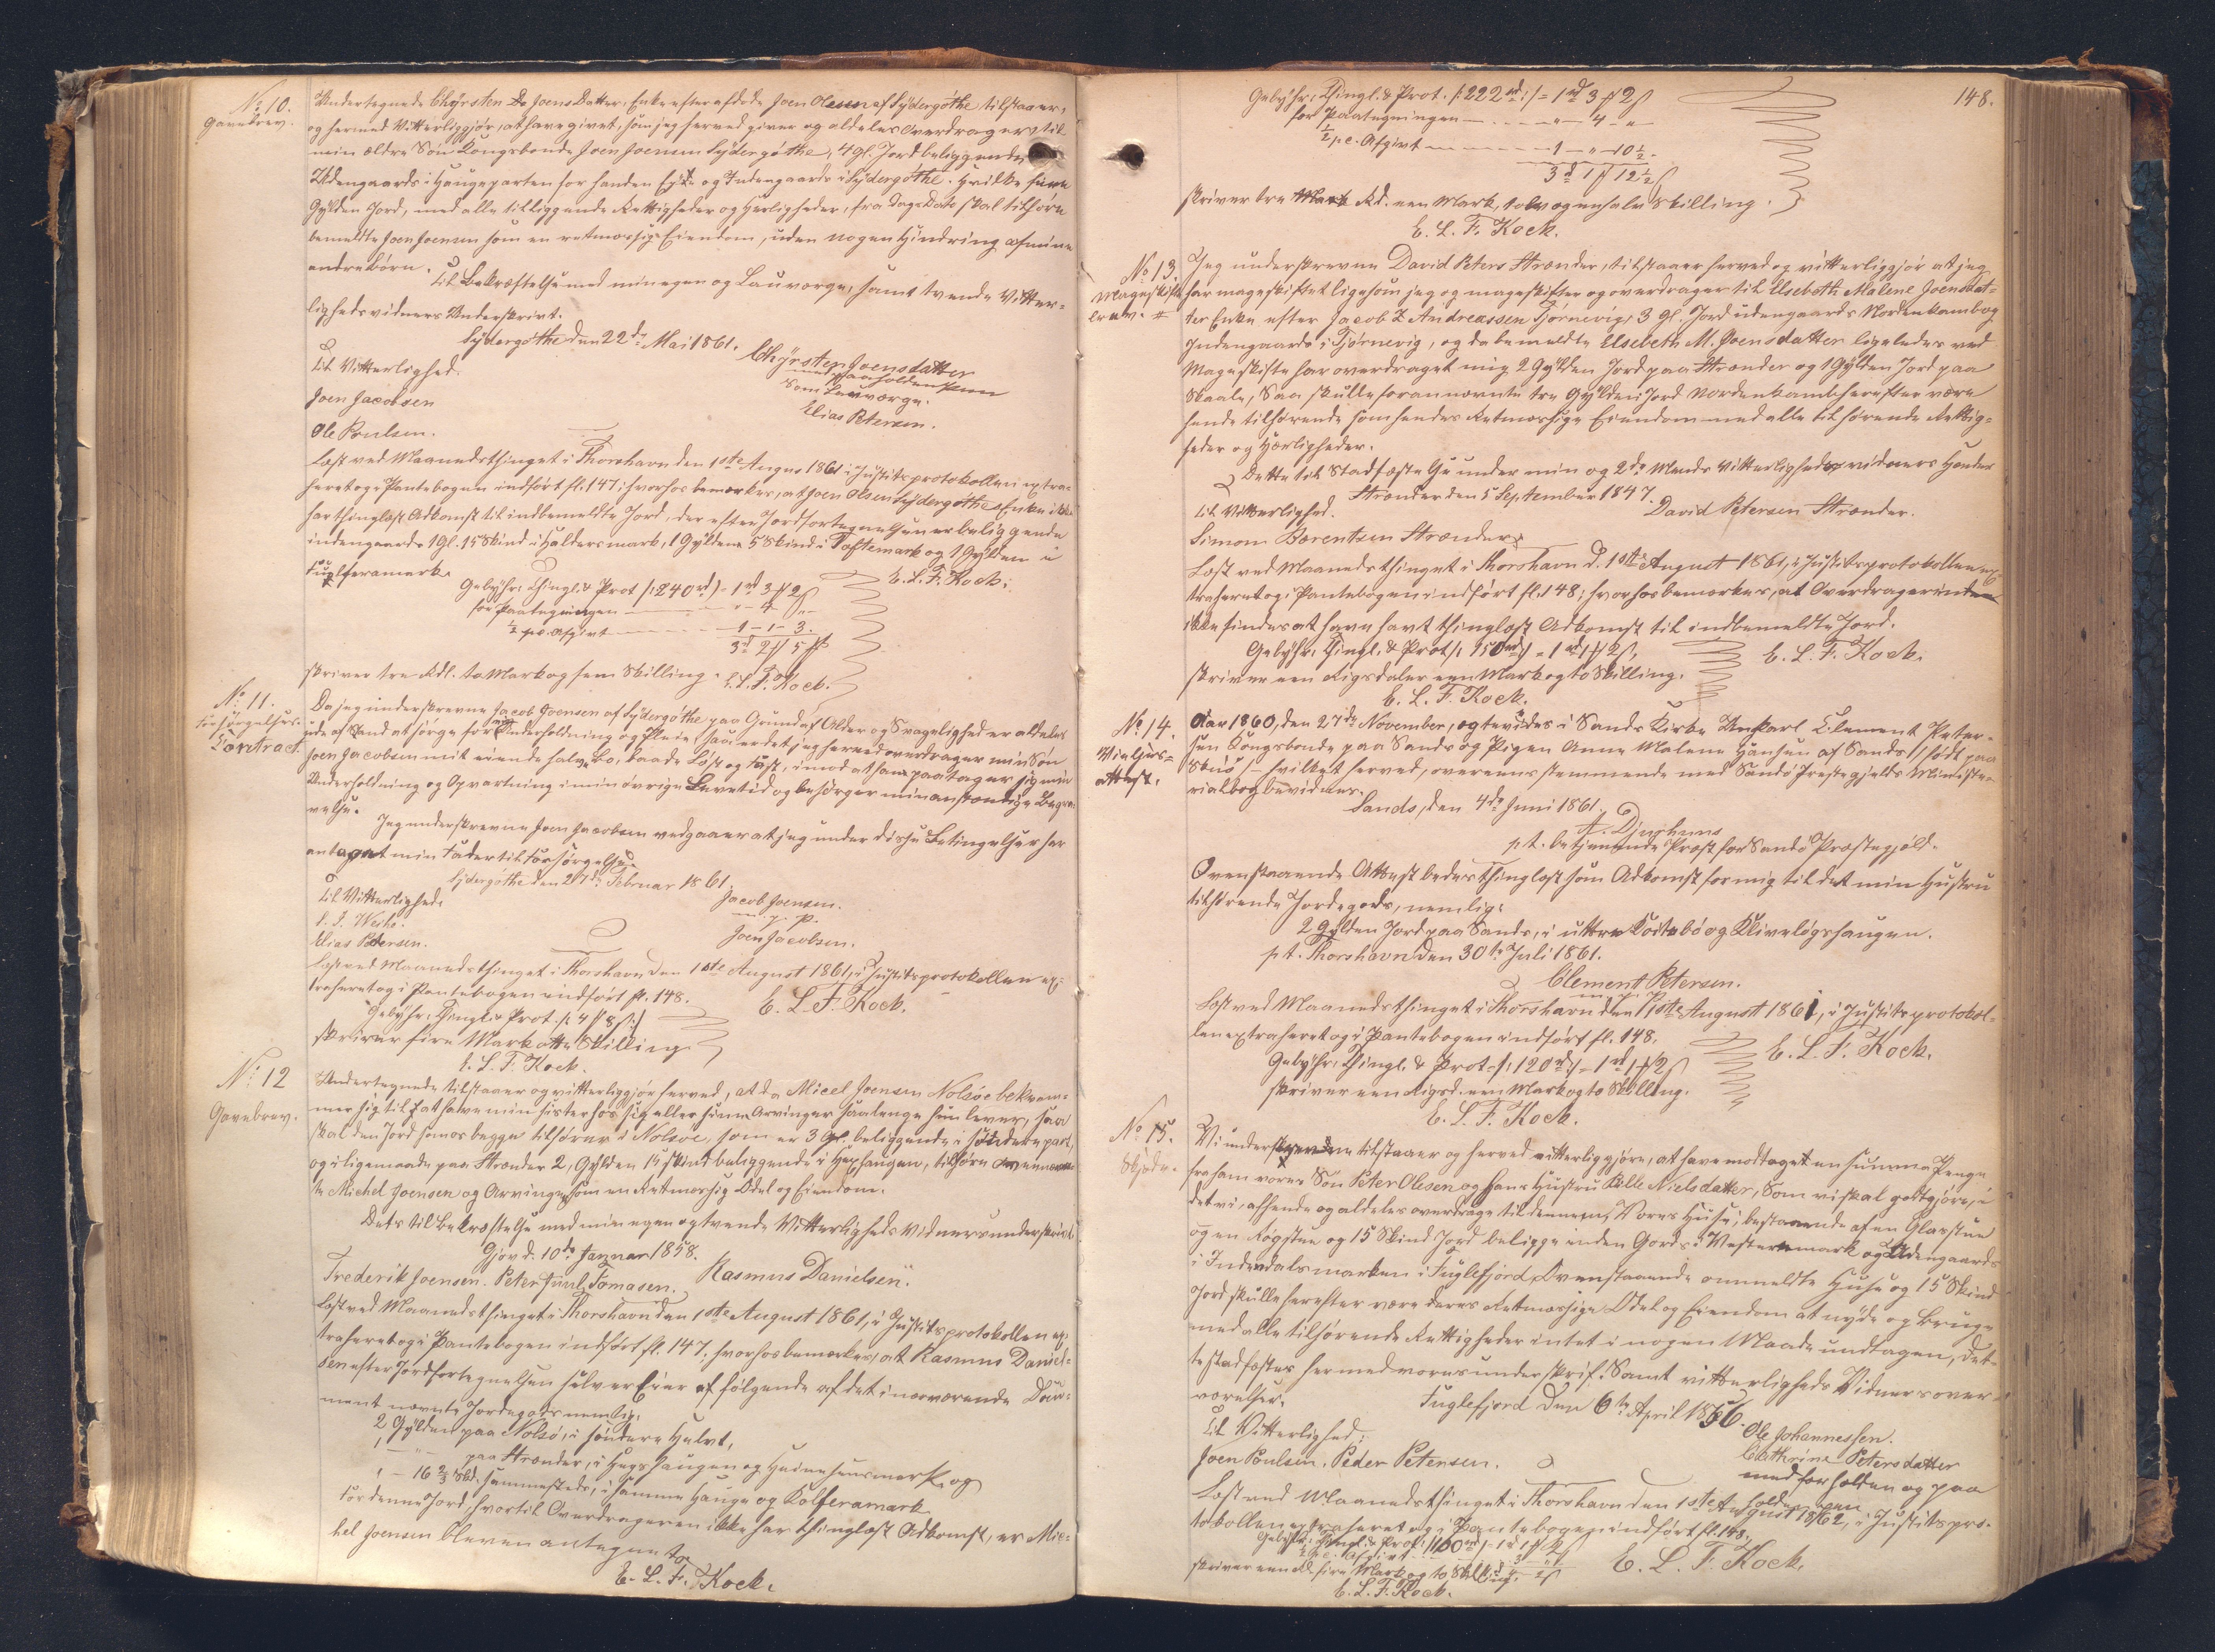 No 10.
Gavebrev.
Undertegnede Chyrsten Joens Datter, Enke efter afdøde Joen Olesen af Sydergøthe tilstaaer,
og hermed Vitterliggjør, at have givet, som jeg herved giver og aldeles Overdrager til
min ældre Søn Kongsbonde Joen Joensen Sydergøthe, 4 gl. Jord beliggende
Udengaards i Haugeparten for handen og Indengaards i Sydergøthe. Hvilke
Gylden Jord, med alle tilliggende Rettigheder og Herligheder, fra Dags Dato skal tilhøre
bemeldte Joen Joensen som en retmæssig Eiendom, uden nogen Hindring af mine
andre Børn.
Til Bekræftelse med min egen og Laugværge, samt tvende Vitter-
lighedsvidners Underskrivt.
Sydergøthe den 22de Mai 1861.
Chyrsten Joensdatter
med paaholden Pen
Som Laugværge.
Elias Petersen.
Til Vitterlighed.
Joen Jacobsen
Ole Poulsen.
Læst ved Maanedsthinget i Thorshavn den 1ste August 1861 i Justitsprotokollen extra-
heret og i Pantebogen indført fl. 147; hvorhos bemærkes, at Joen Olsen Sydergøthes Enke ikke
har thinglæst Adkomst til indbemeldte Jord, der efter Jordfortegnelsen er beliggende
indengaards 1 Gl. 15 Skind i Halders mark, 1 Gylden 5 Skind i Toftemark og 1 Gylden i
E. L. F. Kock.
Gebyhr: Thingl. & Prot /: 240 rd :/ - 1 rd 3 ß 2
for Paategningen - " - 4 - "
½ pc. Afgivt - 1 - 1 - 3.
3 rd 2 5
skriver tre Rdl. to Mark og fem Skilling.
E. L. F. Kock.
No 11.
Forsørgelses-
Contract
Da jeg underskrevne Jacob Joensen af Sydergøthe paa Grund af Alder og Svagelighed er aldeles
ude af Stand at sørge for min Underholdning og Pleie, saa er det jeg herved overdrager min Søn
Joen Jacobsen mit eiende halve Bo, baade Løst og Fast, imod at han paatager sig min
Underholdning og Opvartning i min øvrige Levetid og besørger min anstændige Begra-
velse.
Jeg underskrevne Joen Jacobsen vedgaaer at jeg under disse Betingelser har
antaget min Fader til Forsørgelse.
Sydergøthe den 27de Februar 1861
Til Vitterlighed.
Elias Petersen.
Jacob Joensen.
m. p. P.
Joen Jacobsen.
Læst ved Maanedsthinget i Thorshavn den 1ste August 1861, i Justitsprotokollen ex-
traheret og i Pantebogen indført fl. 148.
E. L. F. Kock.
Gebyhr: Thingl. & Prot. /: 4 ß 8 :/
skriver fire Mark otte Skilling.
E. L. F. Kock.
No 12
Gavebrev.
Undertegnede tilstaaer og vitterliggjør herved, at da Micel Joensen Nolsøe bekvem-
mer sig til at have min Sister hos sig eller sine Arvinger saalenge hun lever, saa
skal den Jord som os begge tilhører i Nolsøe, som er 3 Gl. beliggende i søndere part,
og i ligemaade paa Strænder 2, Gylden 15 Skind beliggende i Hegshaugen, tilhøre ovennævn-
te Michel Joensen og Arvinge som en Retmæssig Odel og Eiendom.
Dets til Bekræftelse med min egen og tvende Vitterligheds Vidners underskrivt
Gjov d. 10de Januar 1858.
Rasmus Danielsen.
Frederik Joensen. Peter Juul Tomasen.
Læst ved Maanedsthinget i Thorshavn den 1ste August 1861, i Justitsprotokollen ex-
traheret og i Pantebogen indført fl. 147. hvorhos bemærkes, at Rasmus Daniel-
sen efter Jordfortegnelsen selv er Eier af følgende af det i nærværende Docu-
ment nævnte Jordegods nemlig:
2 Gylden paa Nolsø, i søndere Halvt,
1 - " - paa Strænder, i Hegshaugen og Heinesunsmark og
" - 16 2/3 Skd. sammesteds, i samme Hauge og Kolferamark
For denne Jord, hvortil Overdrageren ikke har thinglæst Adkomst, er Mic-
hel Joensen bleven antegnet
E. L. F. Kock.
148.
Gebyhr: Thingl. & Prot. /: 222 rd :/ = 1 rd 3 ß 2
for Paategningen - " - 4 - "
½ pc. Afgivt - 1 - " - 10 ½
3 rd 1 12 ½
skriver tre Rd. een Mark, tolv og en halv Skilling.
E. L. F. Kock.
No 13.
Mageskifte-
brev.
Jeg underskrevne David Peters Strænder, tilstaaer herved og vitterliggjør at jeg
har mageskiftet ligesom jeg og mageskifter og overdrager til Elsebeth Malene Joensdat-
ter Enke efter Jacob Andreassen Tjørnevig, 3 gl. Jord udengaards Nordenkamb og
Indengaards i Tjørnevig, og da bemeldte Elsebeth M. Joensdatter ligeledes ved
Mageskifte har overdraget mig 2 Gylden Jord paa Strænder og 1 Gylden Jord paa
Skaale, Saa skulle forannævnte tre Gylden Jord Nordenkamb herefter være
hende tilhørende som hendes Retmæssige Eiendom med alle tilhørende Rettig-
heder og Herligheder.
Dette til Stadfæstelse under min og 2de Mænds Vitterlighedsvidners Hænder
Strænder den 5 September 1847.
Til Vitterlighed.
David Petersen Strænder.
Simon Bærentsen Strænder
Læst ved Maanedsthinget i Thorshavn d. 1ste August 1861, i Justitsprotokollen ex-
traheret og i Pantebogen indført fl. 148; hvorhos bemærkes, at Overdragerinden
ikke findes at have havt thinglæst Adkomst til indbemeldte Jord.
Gebyhr: Thingl. & Prot /: 150 rd :/ = 1 rd 1 ß 2
E. L. F. Kock.
skriver een Rigsdaler een Mark og to Skilling.
E. L. F. Kock.
No 14.
Vielses-
attest.
Aar 1860, den 27de November, ægtevides i Sands Kirke Ungkarl Clement Peter-
sen Kongsbonde paa Sands og Pigen Anne Malene Hansen af Sands, født paa
Skuø, - hvilket herved, overeensstemmende med Sandø Præstegjelds Ministe-
rialbog bevidnes.
Sands, den 4de Juni 1861.
Djurhuus
p. t. betjenende Præst for Sandø Præstegjæld.
Ovenstaaende Attest bedes thinglæst som Adkomst for mig til det min Hustru
tilhørende Jordegods, nemlig:
2 Gylden Jord paa Sands, i uttre Koitebø og Kliveløgshaugen.
pt. Thorshavn den 30te Juli 1861.
Clement Petersen.
Læst ved Maanedsthinget i Thorshavn den 1ste August 1861, i Justitsprotokol-
len extraheret og i Pantebogen indført fl. 148.
E. L. F. Kock.
Gebyhr: Thingl. & Prot. /: 120 rd :/ - 1 rd 1 ß 2
skriver een Rigsd. een Mark og to Skilling.
E. L. F. Kock.
No 15.
Skjøde.
Vi underskrevne tilstaaer og herved vitterliggjøre, at have modtaget en Summa Penge
fra ham vores Søn Peter Olesen og hans Hustru Bille Nielsdatter, Som vi skal godtgjøre, i
det vi, afhende og aldeles overdrage til dennem, Vores Huse, bestaaende af en Glasstue
og en Røgstue og 15 Skind Jord beligge inden Gards i Vestermark og Udengaards
i Inderdalsmarken i Fuglefjord. Ovenstaaende ommeldte Huse og 15 Skind
Jord skulle herefter være deres Retmæssige Odel og Eiendom at nyde og bruge
med alle tilhørende Rettigheder intet i nogen Maade undtagen, det-
te stadfæstes hermed vores underskrift. Samt vitterligheds Vidners over-
værelse.
Fuglefjord den 6te April 1856.
Til Vitterlighed:
Joen Poulsen. Peder Petersen.
Ole Johannessen.
Cathrine Petersdatter
med forholden og paa
holden Pen
Læst ved Maanedsthinget i Thorshavn den 1ste August 1862, i Justitspro-
tokollen extraheret og i Pantebogen indført fl. 148.
Gebyhr: Thingl. & Prot.
½ pc. Afgivt
E. L. F. Kock.
skriver een Rd. fire Mark og to Skilling.
E. L. F. Kock.